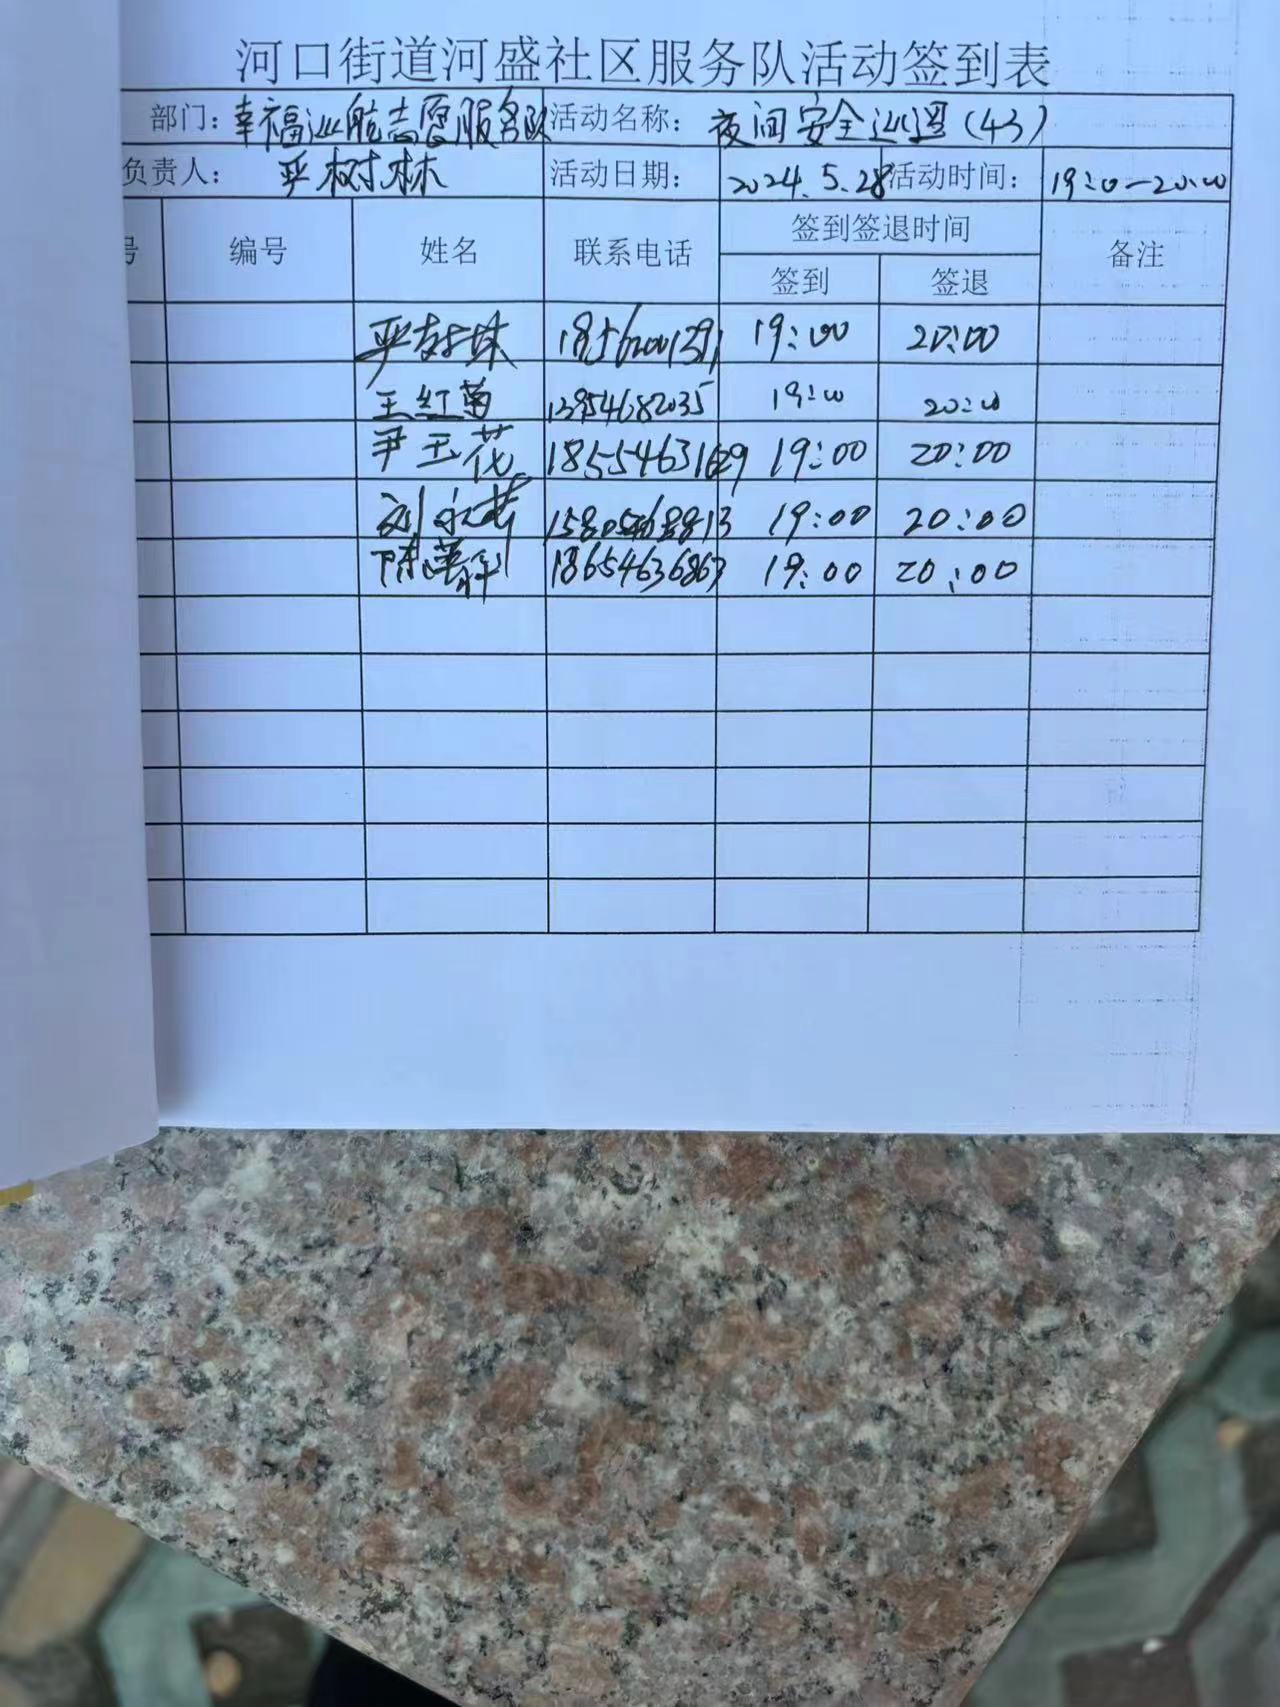 河口街道河盛社区服务队活动签到表
部门：幸福巡航志愿服务队 活动名称： 夜间安全巡逻（43）
负责人： 严树林 活动日期： 2024.5.28 活动时间： 19:00—20:00
号 编号 姓名 联系电话 签到签退时间 备注
签到 签退
严树林 19:00 20:00
王红菊 13954682035 19:00 20:00
尹玉花 19:00 20:00
刘永芹 19:00 20:00
陈 18654636863 19:00 20:00